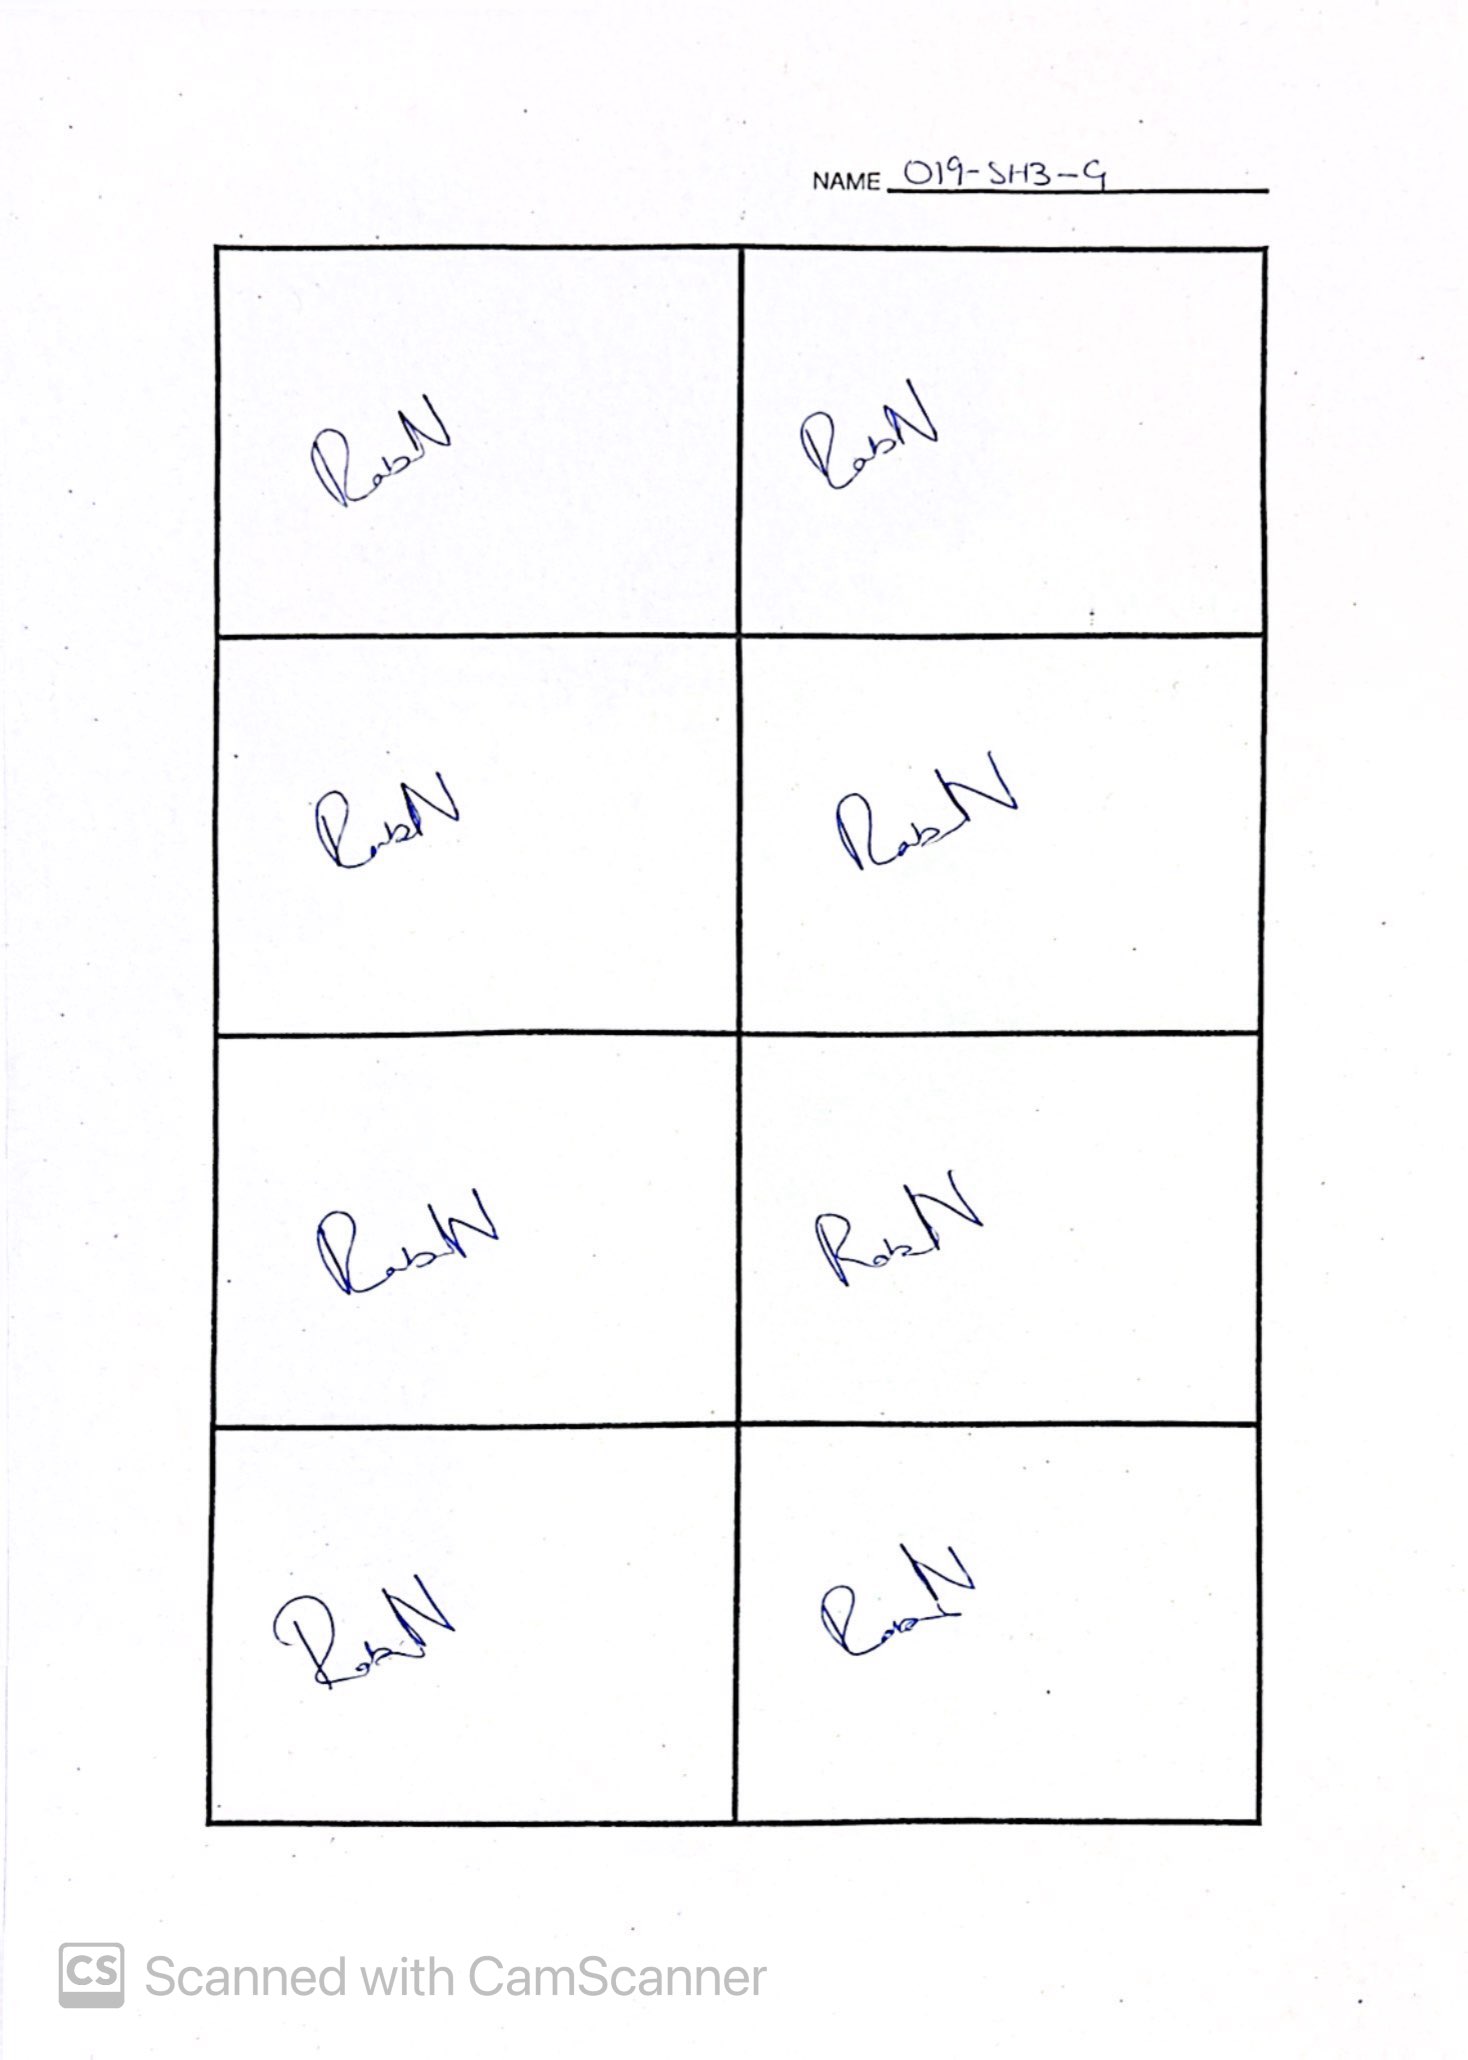 NAME 019-SH3-G
RabN RabN
RabN RabN
RabN RabN
RabN RabN
CS Scanned with CamScanner